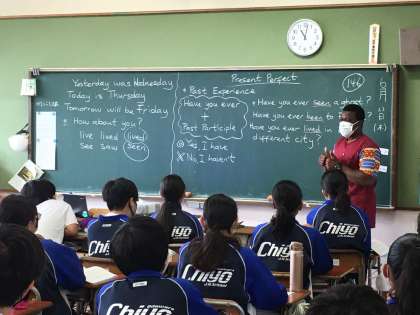 Yesterday was Wednesday
Today is Thursday
Tomorrow will be Friday
* How about you?
live lived (lived)
see saw (seen)
Present Perfect
* Past Experience
Have you ever
+
Past Participle
Yes, I have
No, I haven't
146
• Have you ever seen a ghost?
• Have you ever been to
Have you ever lived in
different city?
月
日
(木)
Chiyo
Chiyo
Chiyo
J.H.School
Chiyo
Chiyo
Chiyo
J.H.School
Chiyo